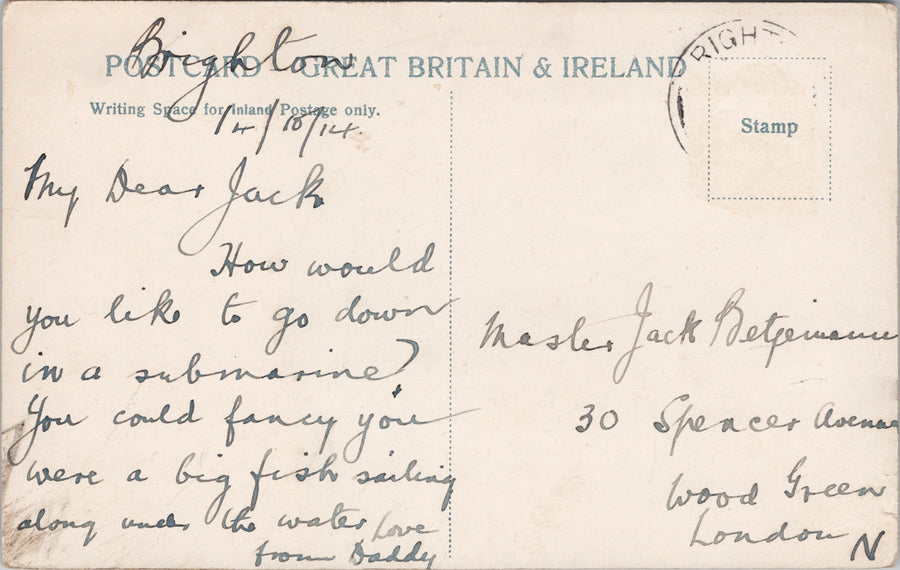 Brighton
POSTCARD GREAT BRITAIN & IRELAND
Writing Space for Inland Postage only.
14/10/14.
My Dear Jack
How would
you like to go down
in a submarine?
You could fancy you
were a big fish sailing
along under the water Love
from Daddy
BRIGHT
Stamp
Master Jack Betjemann
30 Spencer Avenue
Wood Green
London N